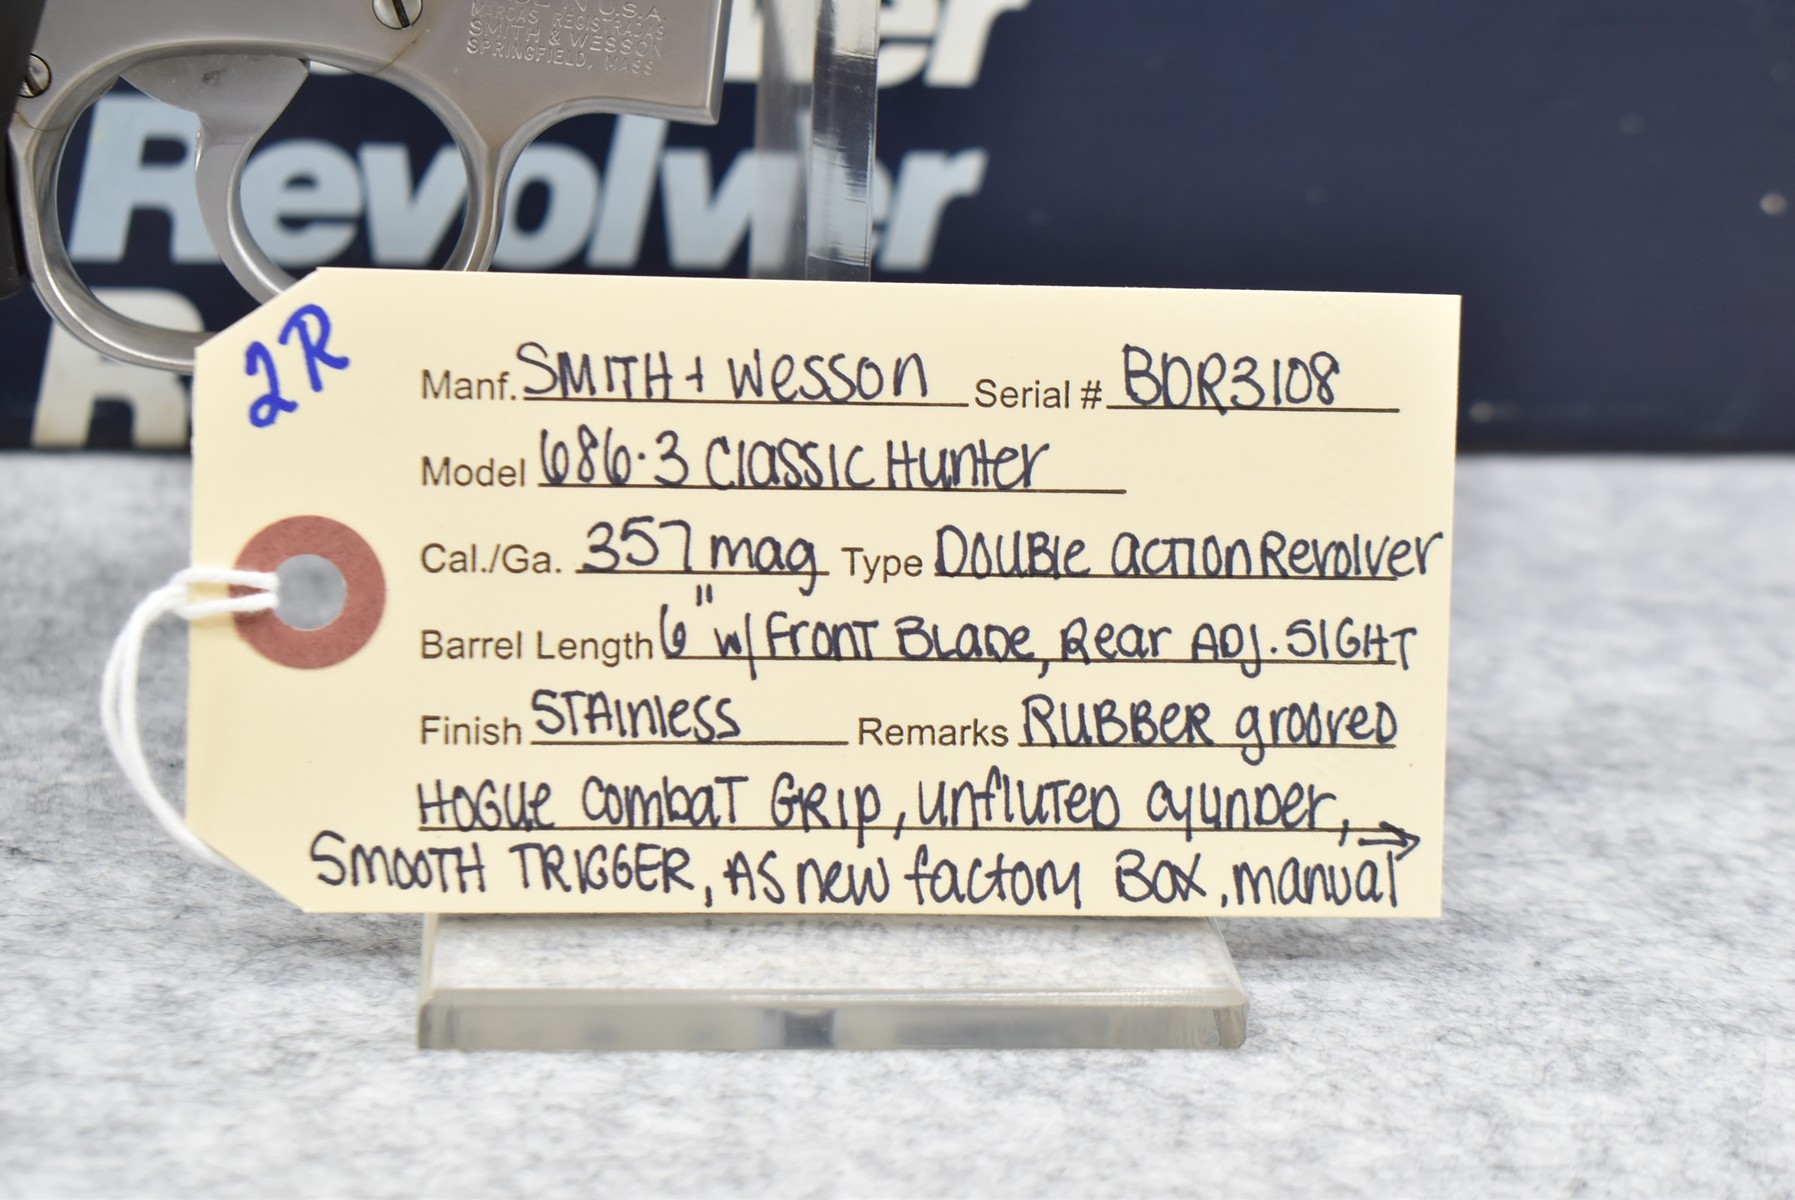 U.S.A.
MARCAS REGISTRADAS
SMITH & WESSON
SPRINGFIELD, MASS
Revolver
2R
Manf. SMITH + Wesson Serial # BDR3108
Model 686·3 Classic Hunter
Cal./Ga. 357 mag Type Double action Revolver
Barrel Length 6" w/ Front Blade, Rear ADJ. SIGHT
Finish STAINless Remarks RUBBER grooved
HOGUE Combat Grip, unfluted cylinder, →
SMOOTH TRIGGER, AS new factory Box, manual